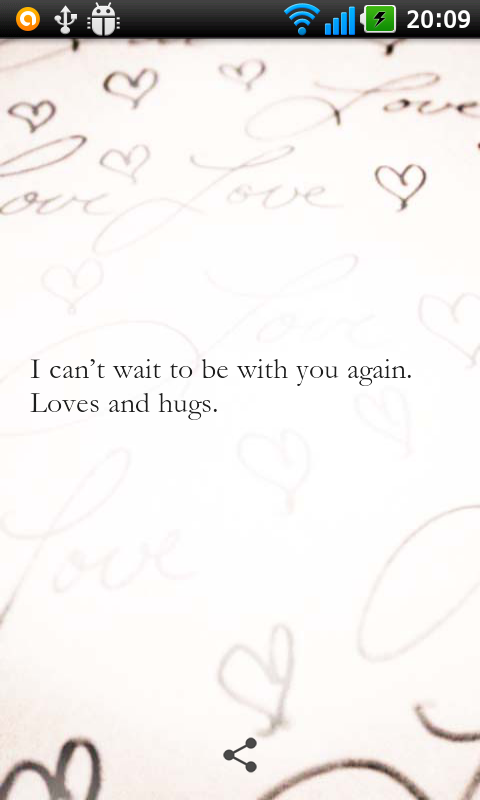 20:09
Love
ove
Love
I can't wait to be with you again.
Loves and hugs.
Love
Love